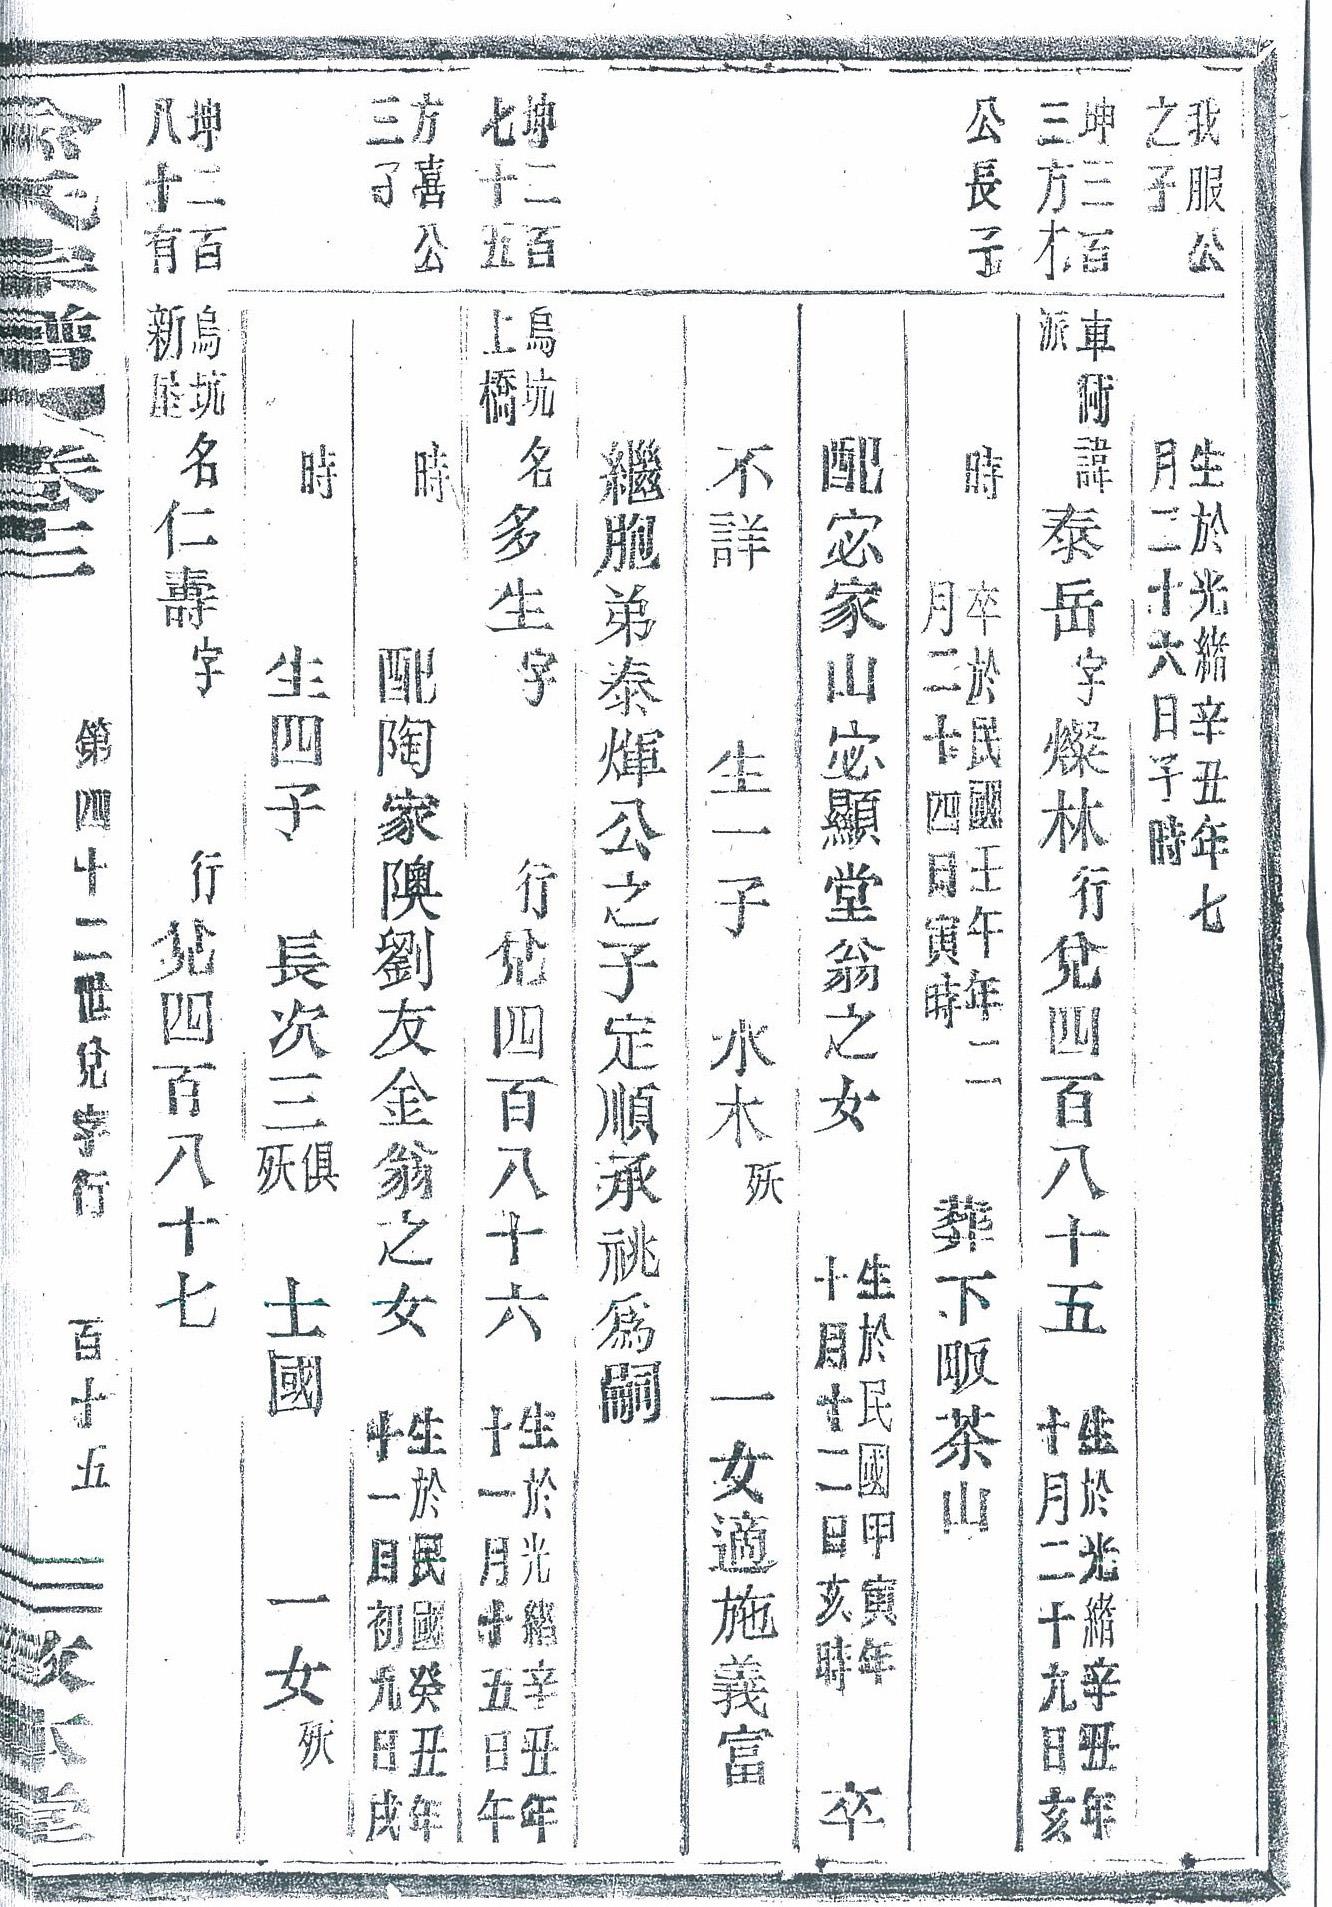 我服公
之子
生於光緒辛丑年七
月二十六日子時
坤三百
三方才
公長子
車衕
派
諱泰岳字燦林行兌四百八十五
生於光緒辛丑年
十月二十九日亥
時
卒於民國壬午年二
月二十四日寅時
葬下畈茶山
配宓家山宓顯堂翁之女
生於民國甲寅年
十月十二日亥時
卒
不詳 生一子 水木殀 一女適施義富
繼胞弟泰煇公之子定順承祧爲嗣
坤二百
七十五
方喜公
三子
烏坑
上橋
名多生字 行兌四百八十六
生於光緒辛丑年
十一月十五日午
時 配陶家隩劉友金翁之女
生於民國癸丑年
十一月初九日戌
時 生四子 長次三俱殀 士國 一女殀
坤二百
八十有
烏坑
新屋
名仁壽字 行兌四百八十七
第四十二世兌字行 百十五
氏宗譜 卷三